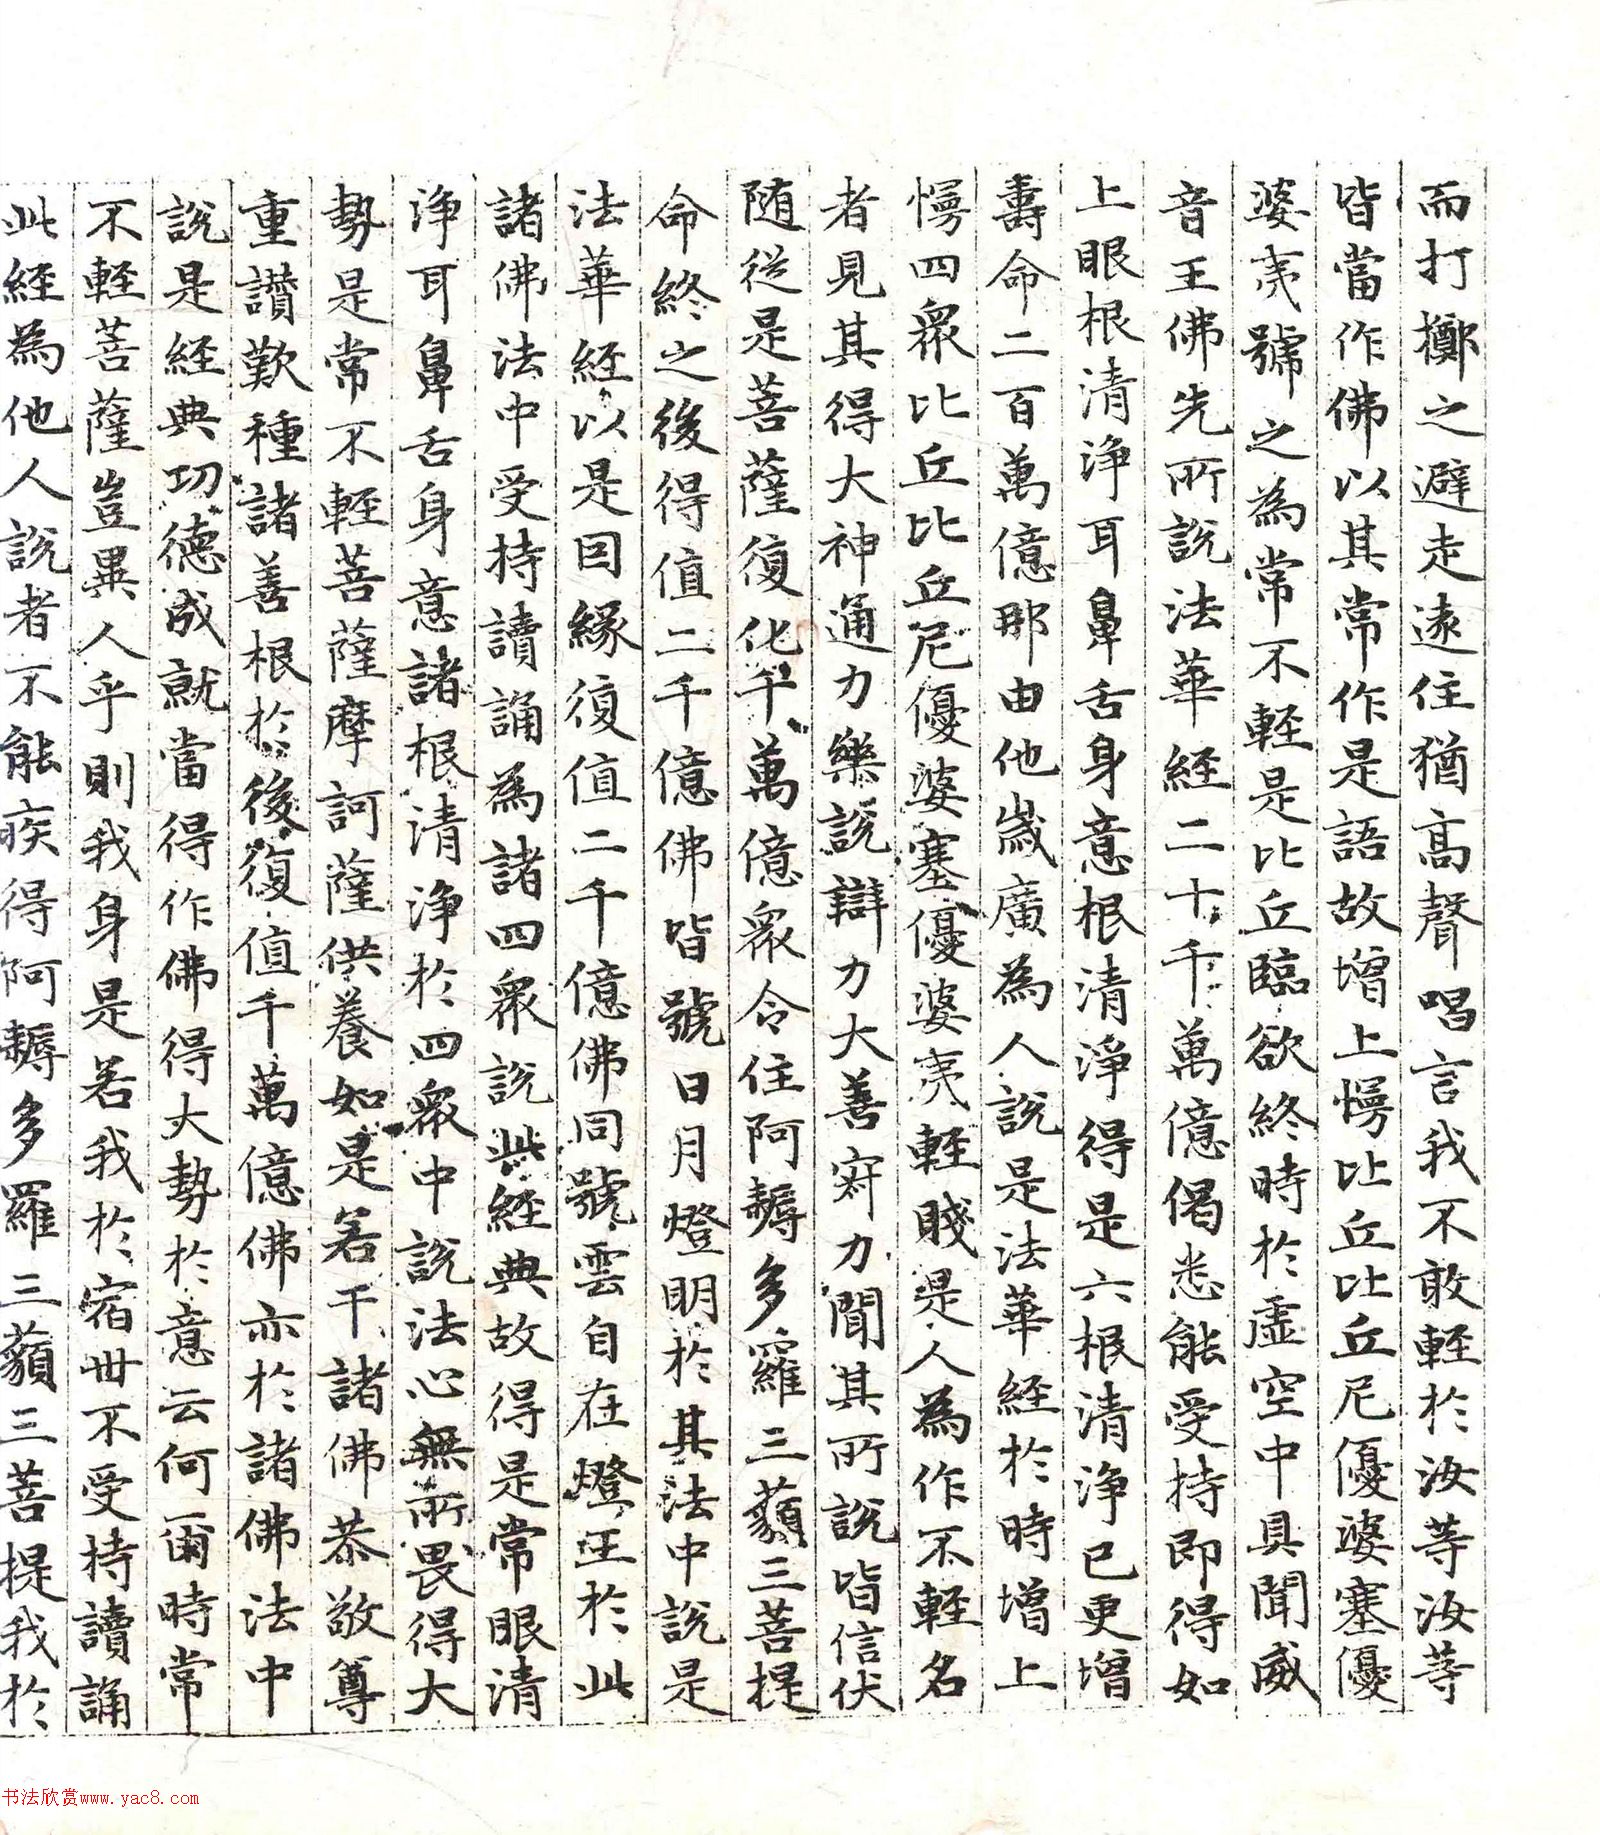 而打擲之避走遠住猶高聲唱言我不敢輕於汝等汝等
皆當作佛以其常作是語故增上慢比丘比丘尼優婆塞優
婆夷號之為常不輕是比丘臨欲終時於虛空中具聞威
音王佛先所說法華經二十千萬億偈悉能受持即得如
上眼根清淨耳鼻舌身意根清淨得是六根清淨已更增
壽命二百萬億那由他歲廣為人說是法華經於時增上
慢四眾比丘比丘尼優婆塞優婆夷輕賤是人為作不輕名
者見其得大神通力樂說辯力大善寂力聞其所說皆信伏
隨從是菩薩復化千萬億眾令住阿耨多羅三藐三菩提
命終之後得值二千億佛皆號日月燈明於其法中說是
法華經以是因緣復值二千億佛同號雲自在燈王於此
諸佛法中受持讀誦為諸四眾說此經典故得是常眼清
淨耳鼻舌身意諸根清淨於四眾中說法心無所畏得大
勢是常不輕菩薩摩訶薩供養如是若干諸佛恭敬尊
重讚歎種諸善根於後復值千萬億佛亦於諸佛法中
說是經典功德成就當得作佛得大勢於意云何爾時常
不輕菩薩豈異人乎則我身是若我於宿世不受持讀誦
此經為他人說者不能疾得阿耨多羅三藐三菩提我於
书法欣赏www.yac8.com